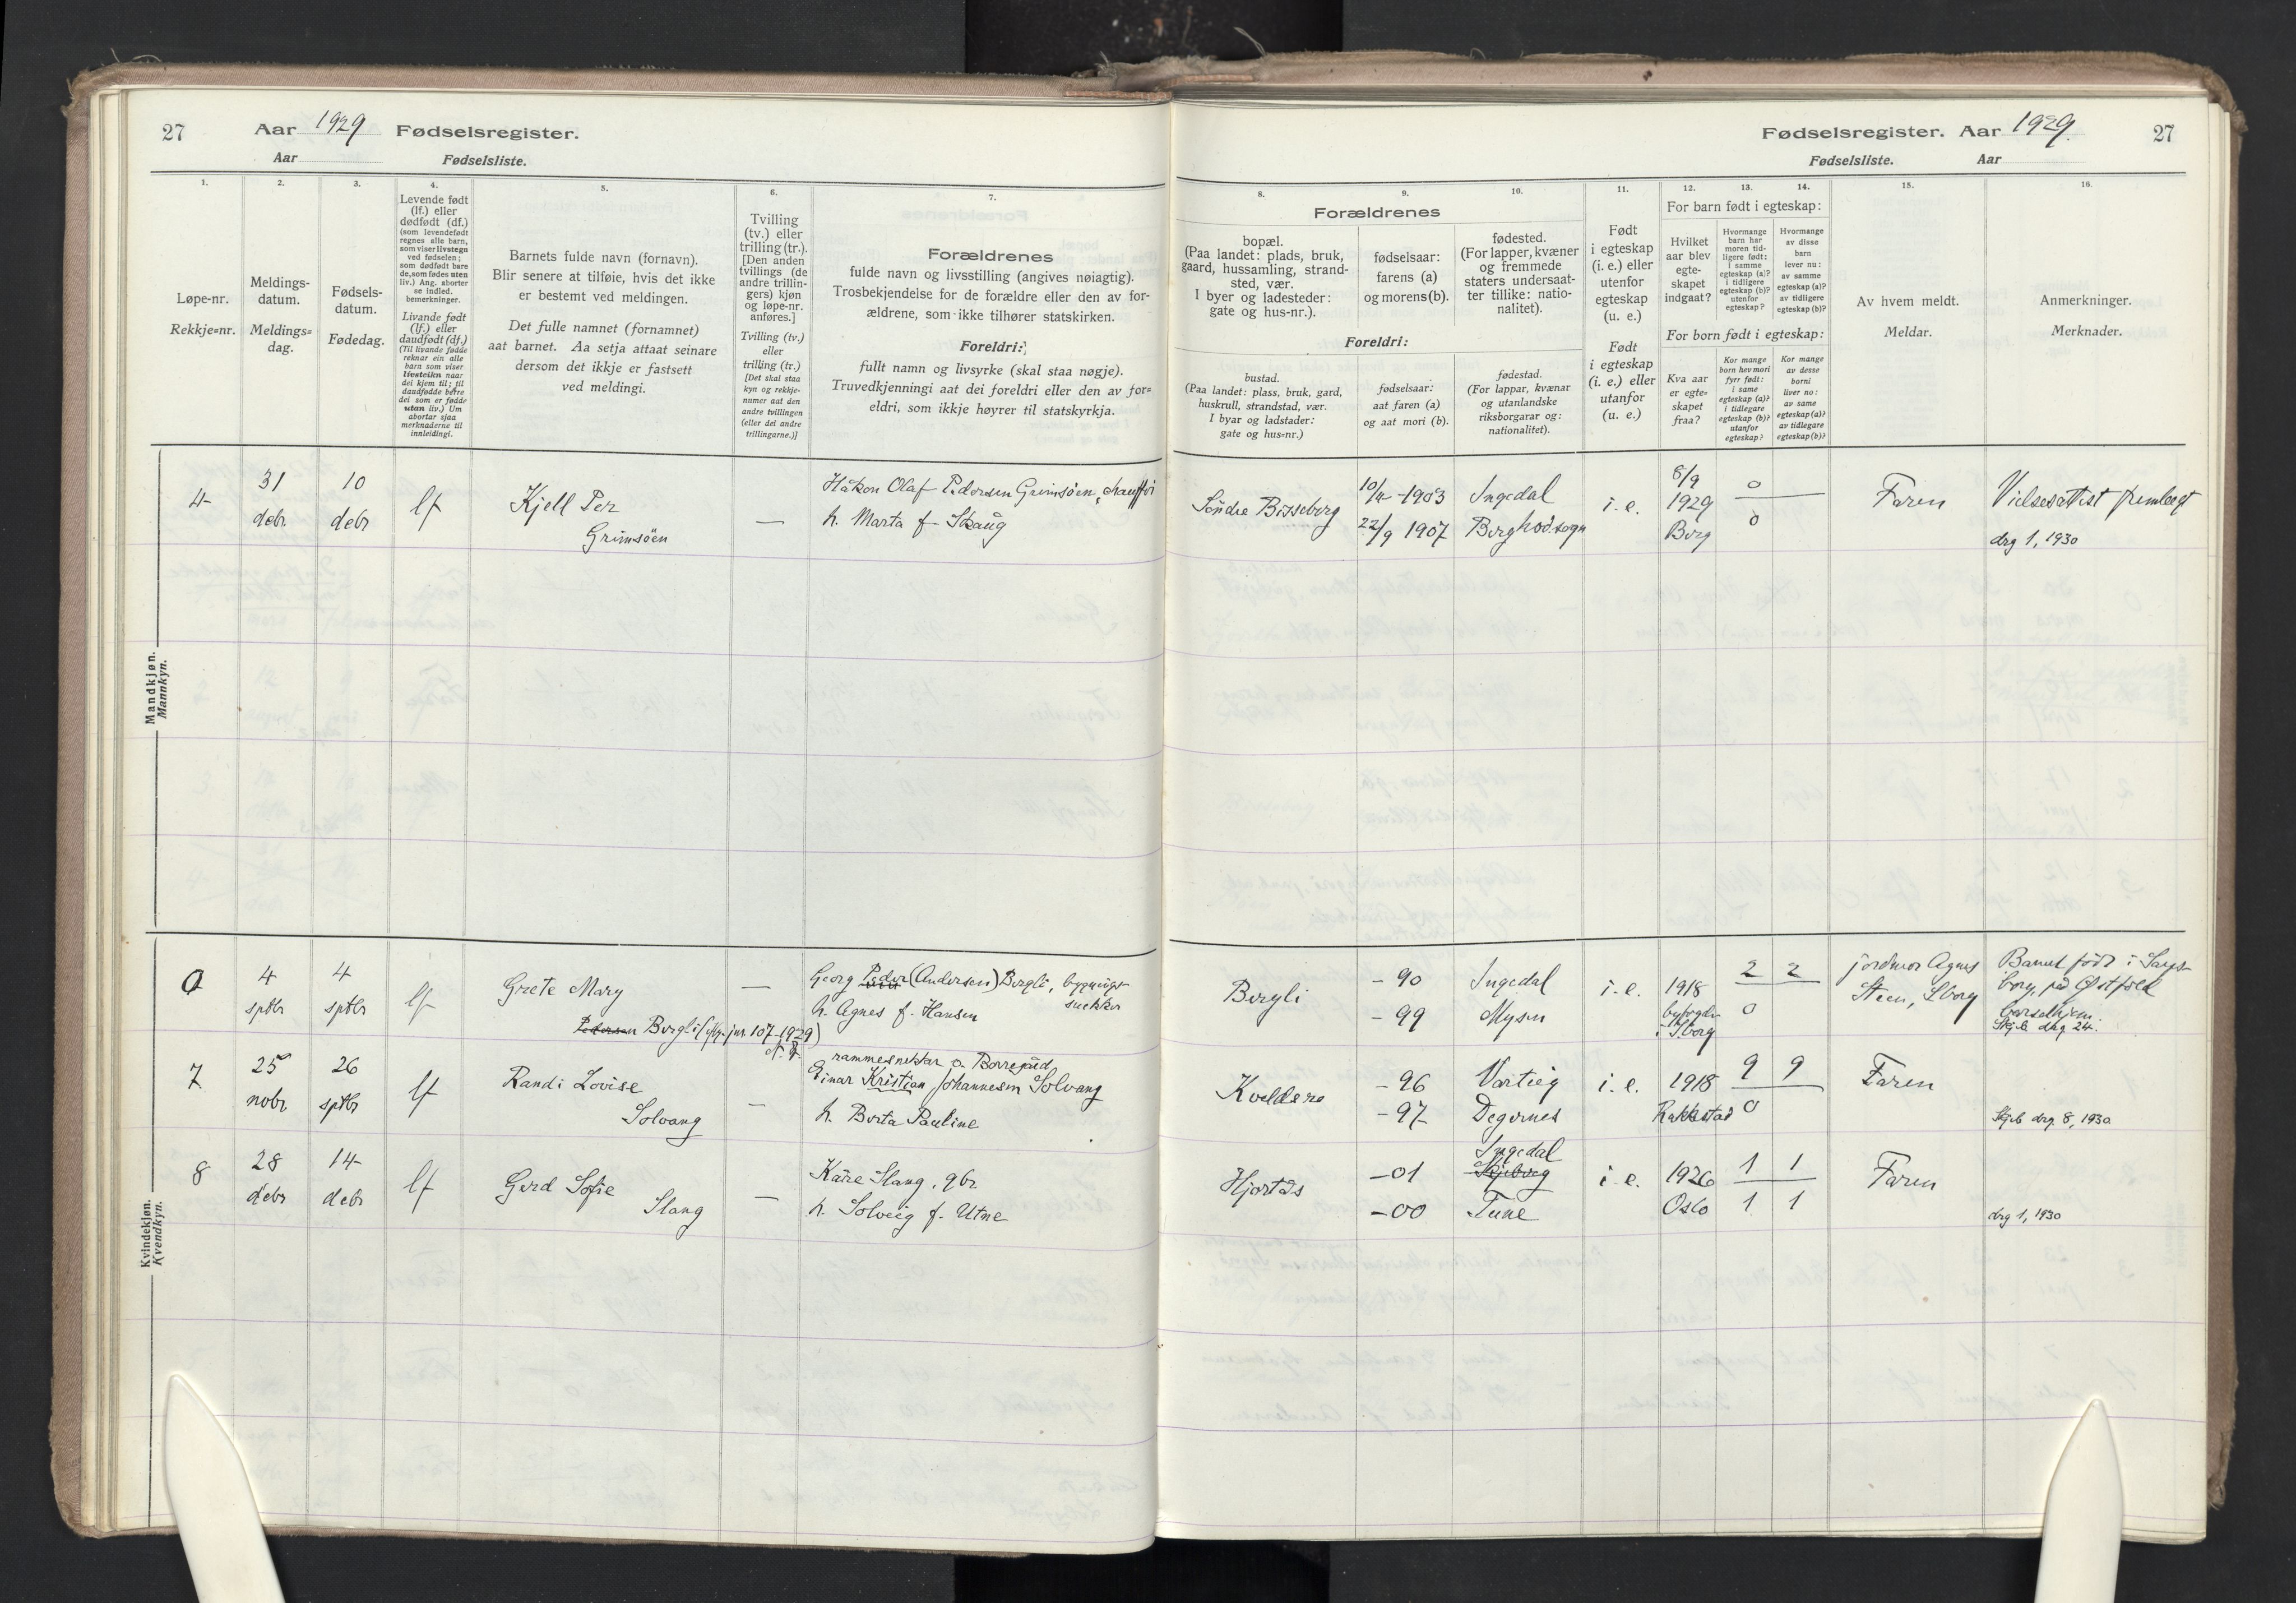 27
Aar 1929 Fødselsregister.
Aar Fødselsliste.
1.
Løpe-nr.
Rekkje=nr.
2.
Meldings-
datum.
Meldings=
dag.
3.
Fødsels-
datum.
Fødedag.
4.
Levende født
(lf.) eller
dødfødt (df.)
(som levendefødt
regnes alle barn,
som viser livstegn
ved fødselen;
som dødfødt bare
de, som fødes uten
liv.) Ang. aborter
se indled.
bemerkninger.
Livande født
(lf.) eller
daudfødt (df.)
(Til livande fødde
reknar ein alle
barn som viser
livsteikn naar
dei kjem til; til
daudfødde berre
dei som er fødde
utan liv.) Um
abortar sjaa
merknaderne til
innleidingi.
5.
Barnets fulde navn (fornavn).
Blir senere at tilføie, hvis det ikke
er bestemt ved meldingen.
Det fulle namnet (fornamnet)
aat barnet. Aa setja attaat seinare
dersom det ikkje er fastsett
ved meldingi.
6.
Tvilling
(tv.) eller
trilling (tr.).
[Den anden
tvillings (de
andre trillin-
gers) kjøn
og løpe-nr.
anføres.]
Tvilling (tv.)
eller
trilling (tr.)
[Det skal staa
kyn og rekkje-
numer aat den
andre tvillingen
(eller dei andre
trillingarne.)]
7.
Forældrenes
fulde navn og livsstilling (angives nøiagtig).
Trosbekjendelse for de forældre eller den av for-
ældrene, som ikke tilhører statskirken.
Foreldri:
fullt namn og livsyrke (skal staa nøgje).
Truvedkjenningi aat dei foreldri eller den av for=
eldri, som ikkje høyrer til statskyrkja.
Fødselsregister. Aar 1929. 27
Fødselsliste. Aar
8. 9. 10.
Forældrenes
bopæl.
(Paa landet: plads, bruk,
gaard, hussamling, strand-
sted, vær.
I byer og ladesteder:
gate og hus-nr.).
fødselsaar:
farens (a)
og morens (b).
fødested.
(For lapper, kvæner
og fremmede
staters undersaat-
ter tillike: natio-
nalitet).
Foreldri:
bustad.
(Paa landet: plass, bruk, gard,
huskrull, strandstad, vær.
I byar og ladstader:
gate og hus=nr.)
fødselsaar:
aat faren (a)
og aat mori (b).
fødestad.
(For lappar, kvænar
og utanlandske
riksborgarar og:
nationalitet).
11.
Født
i egteskap
(i. e.) eller
utenfor
egteskap
(u. e.)
Født
i egteskap
(i. e.) eller
utanfor
(u. e.)
12. 13. 14.
For barn født i egteskap:
Hvilket
aar blev
egte-
skapet
indgaat?
Hvormange
barn har
moren tid-
ligere født:
i samme
egteskap (a)?
i tidligere
egteskap (b)?
utenfor
egteskap?
Hvormange
av disse
barn
lever nu:
av samme
egteskap (a)?
av tidligere
egteskap (b)?
For born født i egteskap:
Kva aar
er egte-
skapet
fraa?
Kor mange
born hev mori
fyrr født:
i same
egteskap (a)?
i tidlegare
egteskap (b)?
utanfor
egteskap?
Kor mange
av desse
borni
liver no:
av same
egteskap (a)?
av tidlegare
egteskap (b)?
15.
Av hvem meldt.
Meldar.
16.
Anmerkninger.
Merknader.
Mandkjøn.
Mannkyn.
4 31 10 lf Kjell Per — Håkon Olaf Pedersen Grimsøen, chauffør
debr debr Grimsöen h. Marta f. Skaug
Söndre Bisseberg 10/4 -1903 Ingedal i. e. 8/9 1929 0 Faren Vielsesattest fremlagt
22/9 1907 Berg hovedsogn Berg 0 drg 1, 1930
Kvindekjøn.
Kvendkyn.
4 4 lf Grete Mary — Georg Peder (Andersen) Bergli, bygnings-
sptbr sptbr Pedersen Bergli 107-1929) h. Agnes f. Hansen snekker
Bergli -90 Ingedal i. e. 1918 2 2 jordmor Agnes Barnet født i Sarps-
-99 Mysen i Sborg 0 Steen, Sborg borg på Østfold
barselhjem.
Skjb drg 24.
7 25 26 lf Randi Lovise — rammesnekker a. Borregård
nobr sptbr Solvang Einar Kristian Johannesen Solvang
h. Berta Pauline
Kveldsro -96 Varteig i. e. 1918 9 9 Faren
-97 Degernes Rakkestad 0 Skjeb drg. 8, 1930
8 28 14 lf Gerd Sofie — Kåre Stang, gbr.
debr debr Stang h. Solveig f. Utne
Hjortås -01 Ingedal Skjeberg i. e. 1926 1 1 Faren
-00 Tune Oslo 1 1 drg 1, 1930